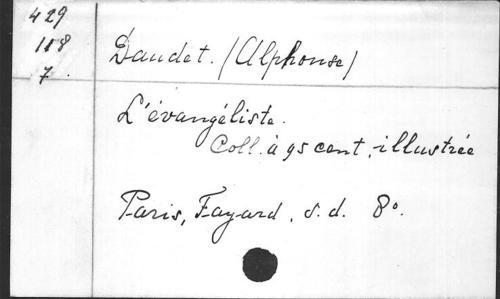 429
118
7.
Daudet. (Alphonse)
L'évangéliste.
Coll. à 95 cent, illustrée
Paris, Fayard, s. d. 8º.